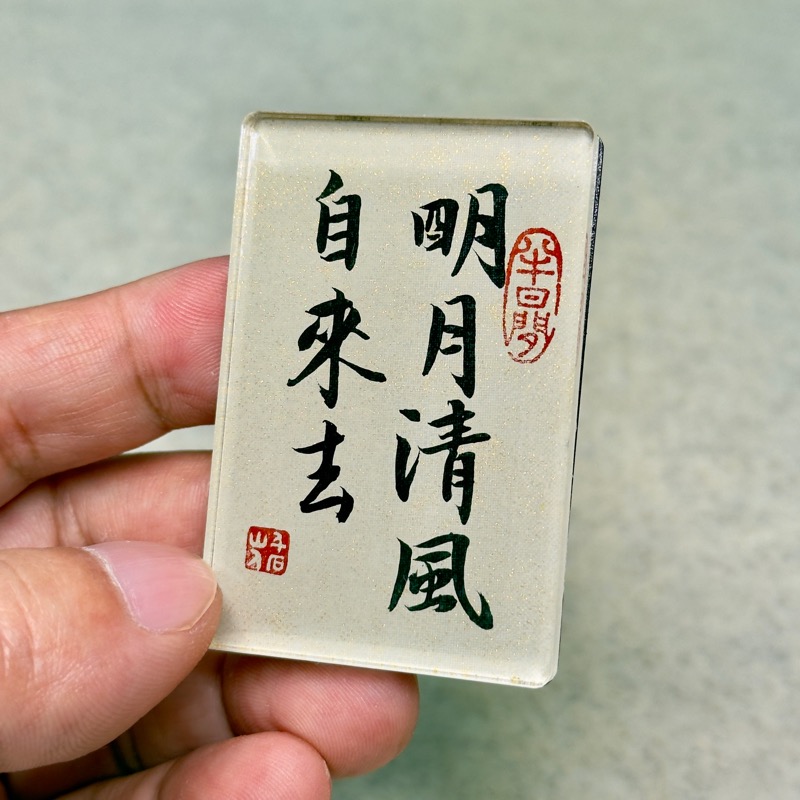 明月清風
自來去
半日閒